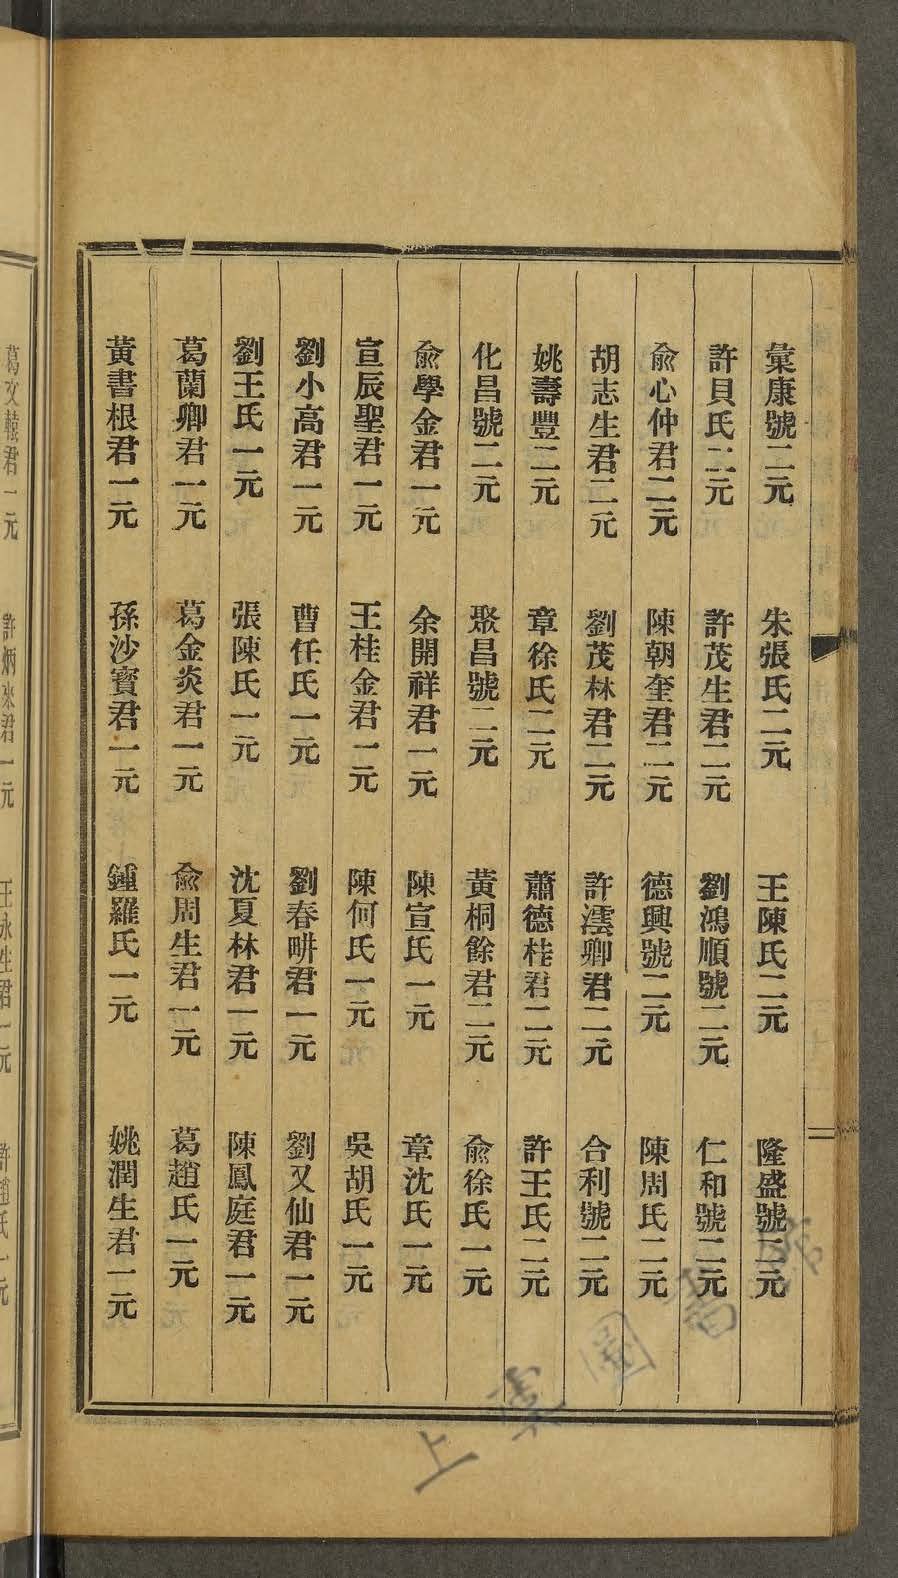 彙康號二元　朱張氏二元　王陳氏二元　隆盛號二元
許貝氏二元　許茂生君二元　劉鴻順號二元　仁和號二元
俞心仲君二元　陳朝奎君二元　德興號二元　陳周氏二元
胡志生君二元　劉茂林君二元　許澐卿君二元　合利號二元
姚壽豐二元　章徐氏二元　蕭德桂君二元　許王氏二元
化昌號二元　聚昌號二元　黃桐餘君二元　俞徐氏一元
俞學金君一元　余開祥君一元　陳宣氏一元　章沈氏一元
宣辰聖君一元　王桂金君一元　陳何氏一元　吳胡氏一元
劉小高君一元　曹任氏一元　劉春畊君一元　劉又仙君一元
劉王氏一元　張陳氏一元　沈夏林君一元　陳鳳庭君一元
葛蘭卿君一元　葛金炎君一元　俞周生君一元　葛趙氏一元
黃書根君一元　孫沙寶君一元　鍾羅氏一元　姚潤生君一元
葛文君一元　許炳來君一元　王永生君一元　許趙氏一元
上虞圖書館